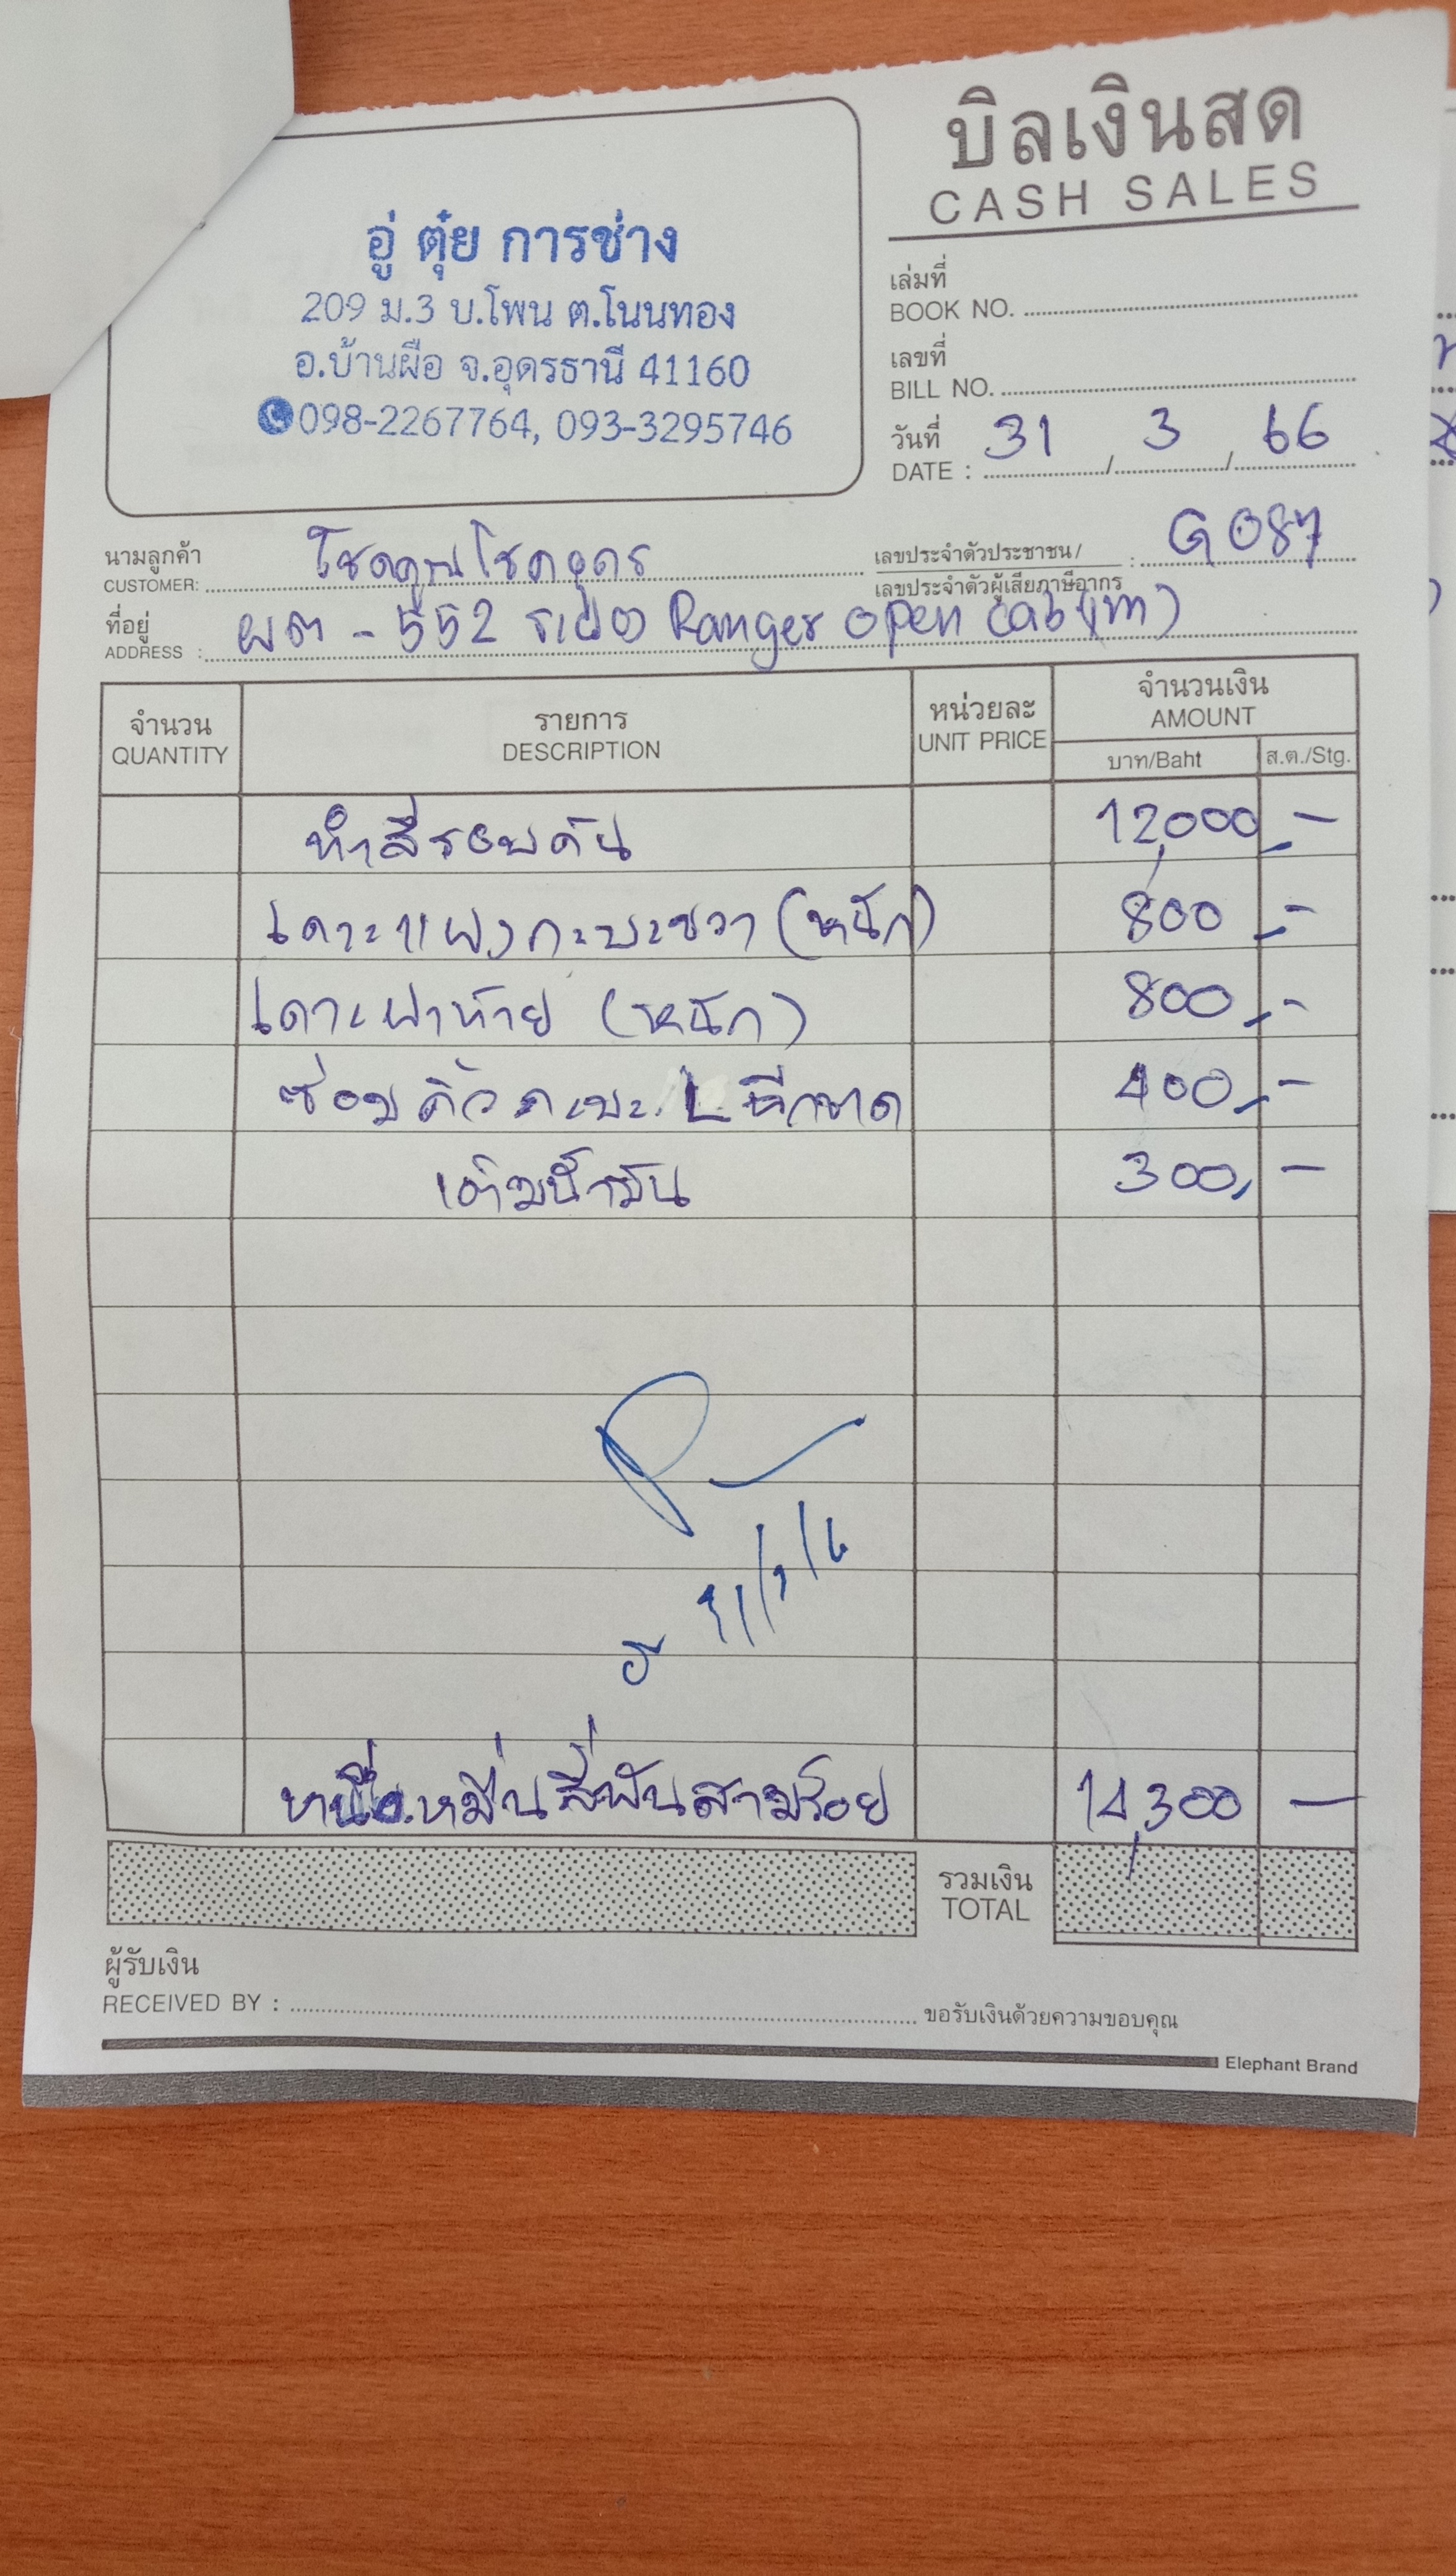 บิลเงินสด
CASH SALES
อู่ ตุ๋ย การช่าง
209 ม.3 บ.โพน ต.โนนทอง
อ.บ้านผือ จ.อุดรธานี 41160
098-2267764, 093-3295746
เล่มที่
BOOK NO.
เลขที่
BILL NO.
วันที่
DATE : 31 / 3 / 66
นามลูกค้า
CUSTOMER: โชคคูณโชคอุดร
เลขประจำตัวประชาชน /
เลขประจำตัวผู้เสียภาษีอากร : G087
ที่อยู่
ADDRESS : ผต - 552 ระยอง Ranger open cab (m)
จำนวน
QUANTITY
รายการ
DESCRIPTION
หน่วยละ
UNIT PRICE
จำนวนเงิน
AMOUNT
บาท/Baht ส.ต./Stg.
ทำสีรอบคัน 12,000,-
เคาะแผงกะบะขวา (หนัก) 800,-
เคาะฝาท้าย (หนัก) 800,-
ซ่อมคิ้วกะบะ L ฉีกขาด 400,-
เติมน้ำมัน 300,-
หนึ่งหมื่นสี่พันสามร้อย 14,300 -
รวมเงิน
TOTAL
ผู้รับเงิน
RECEIVED BY :
ขอรับเงินด้วยความขอบคุณ
Elephant Brand